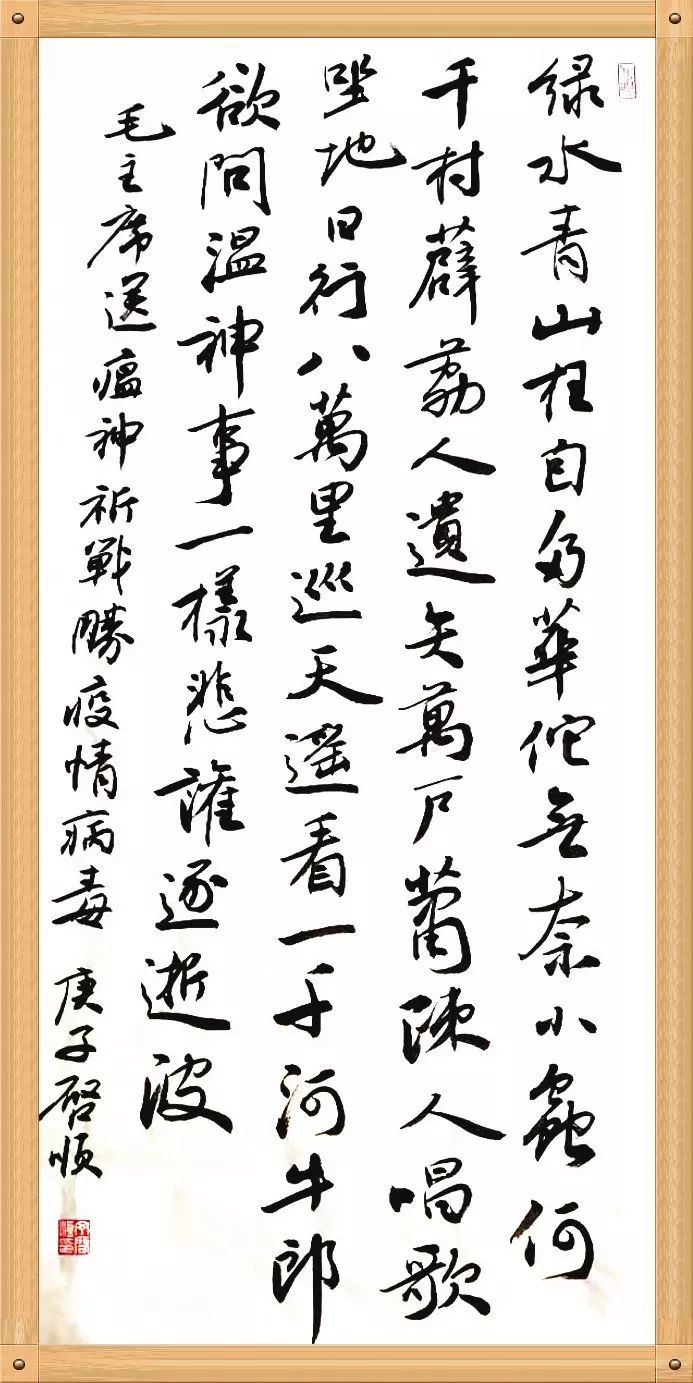 绿水青山枉自多華佗無奈小蟲何
千村薜荔人遺矢萬户蕭陳人唱歌
坐地日行八萬里巡天遥看一千河牛郎
欲問溫神事一樣悲誰逐逝波
毛主席送瘟神祈戰勝疫情病毒 庚子啓顺